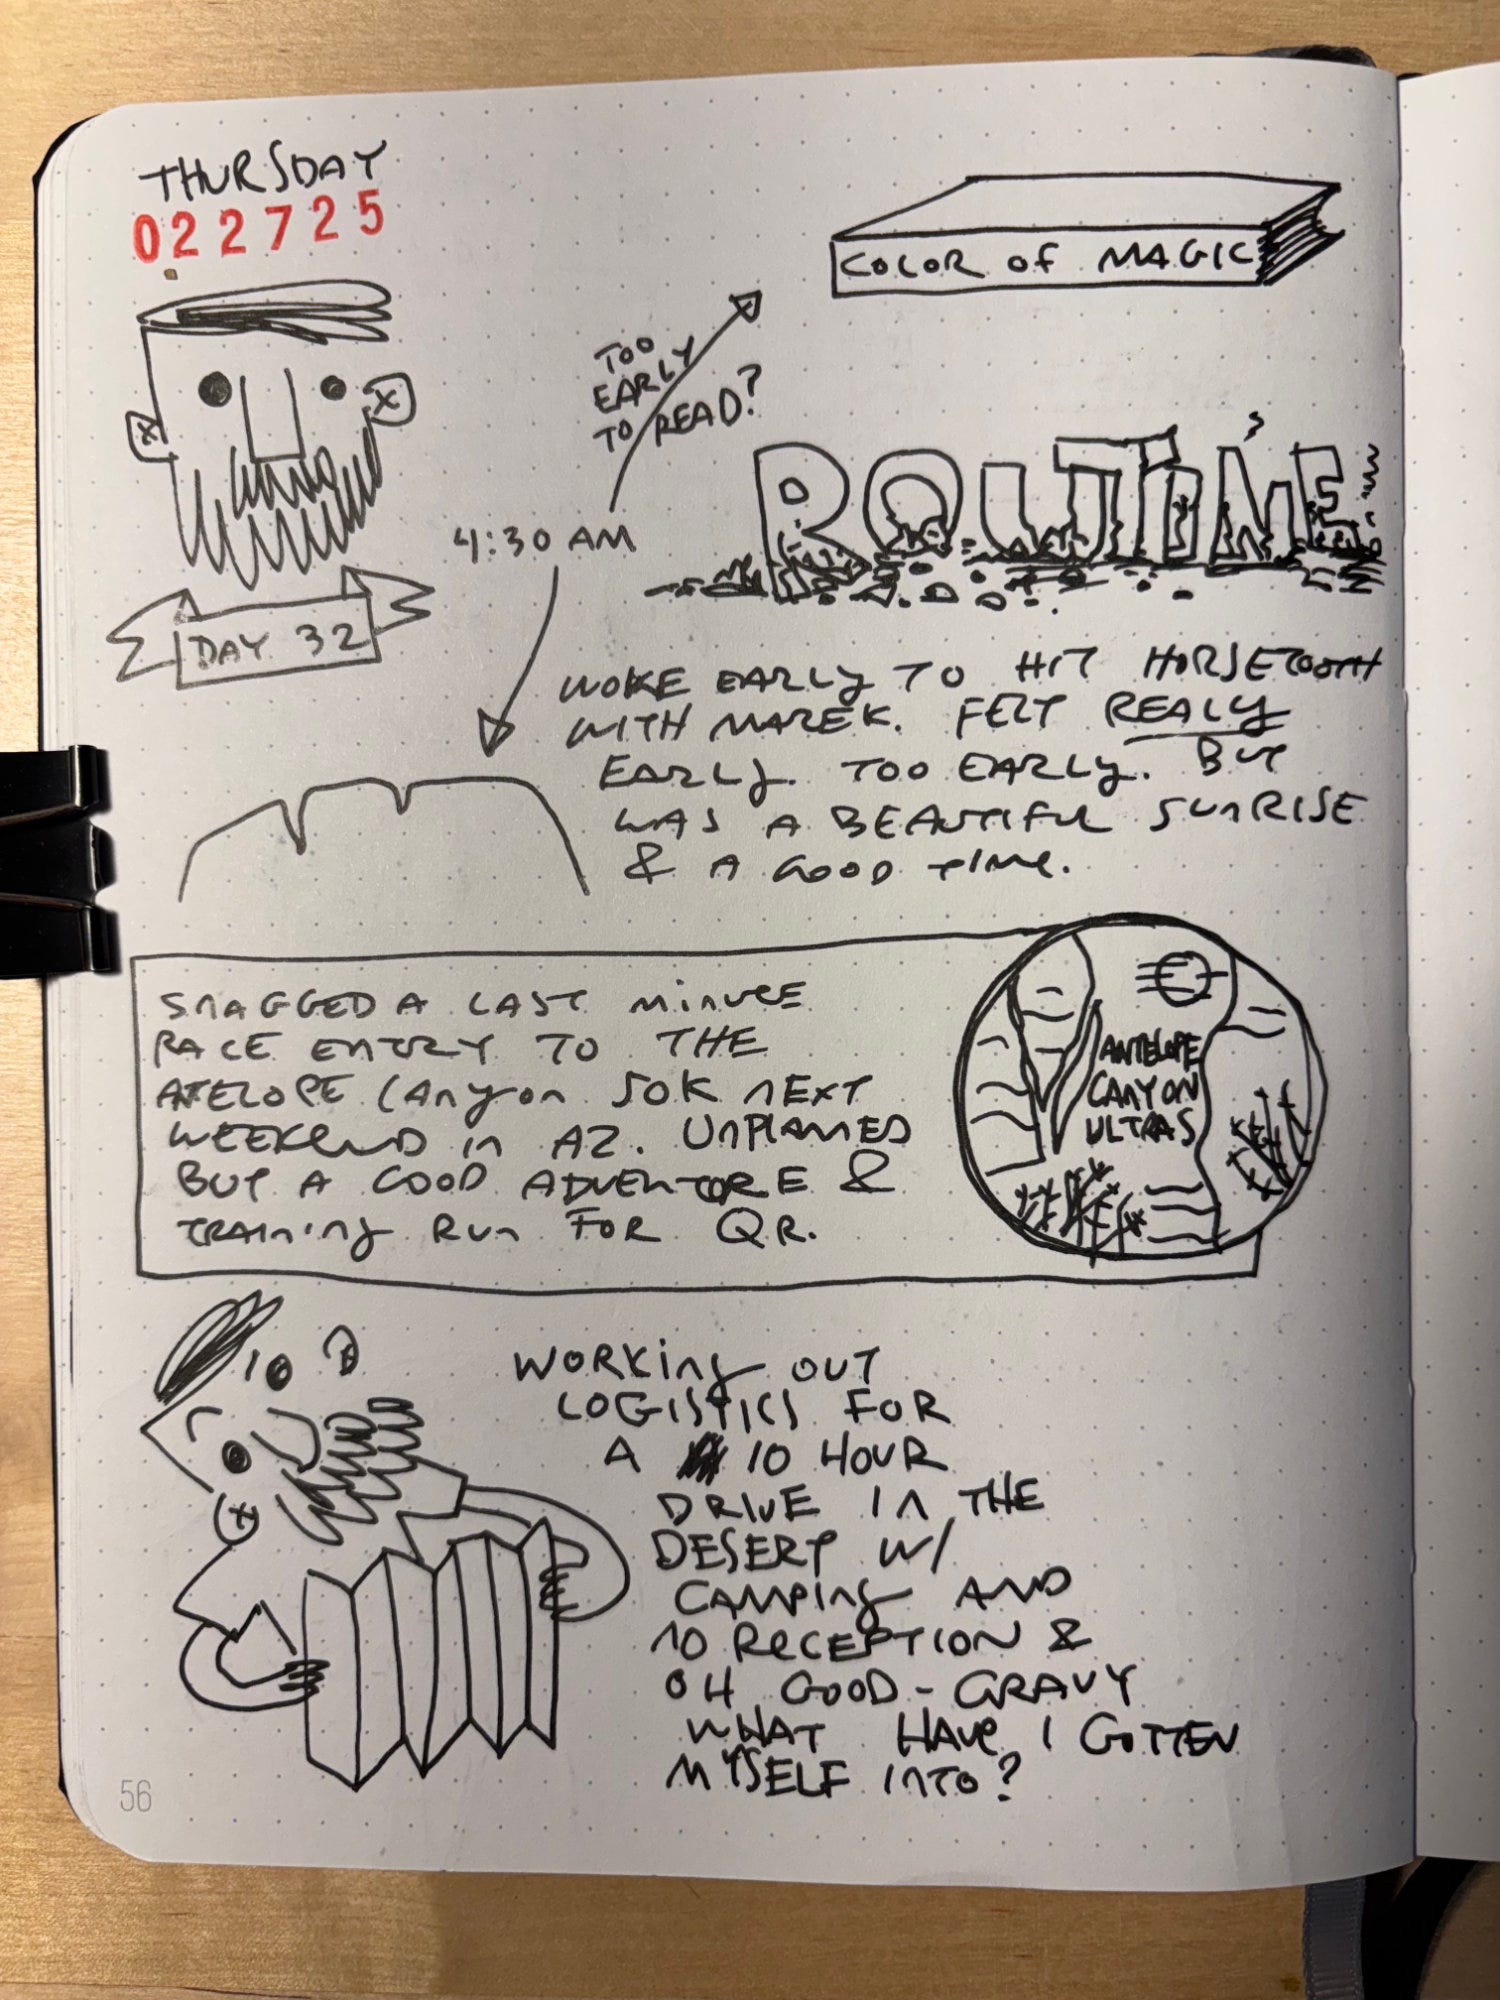 THURSDAY
022725
COLOR OF MAGIC
TOO
EARLY
TO READ?
ROUTINE
4:30 AM
DAY 32
WOKE EARLY TO HIT HORSETOOTH
WITH MAREK. FELT REALY
EARLY. TOO EARLY. BUT
WAS A BEAUTIFUL SUNRISE
& A GOOD TIME.
SNAGGED A LAST MINUTE
RACE ENTRY TO THE
ATELOPE CANYON 50K NEXT
WEEKEND IN AZ. UNPLANNED
BUT A GOOD ADVENTURE &
TRAINING RUN FOR QR.
ANTELOPE
CANYON
ULTRAS
WORKING OUT
LOGISTICS FOR
A 10 HOUR
DRIVE IN THE
DESERT W/
CAMPING AND
NO RECEPTION &
OH GOOD-GRAVY
WHAT HAVE I GOTTEN
MYSELF INTO?
56